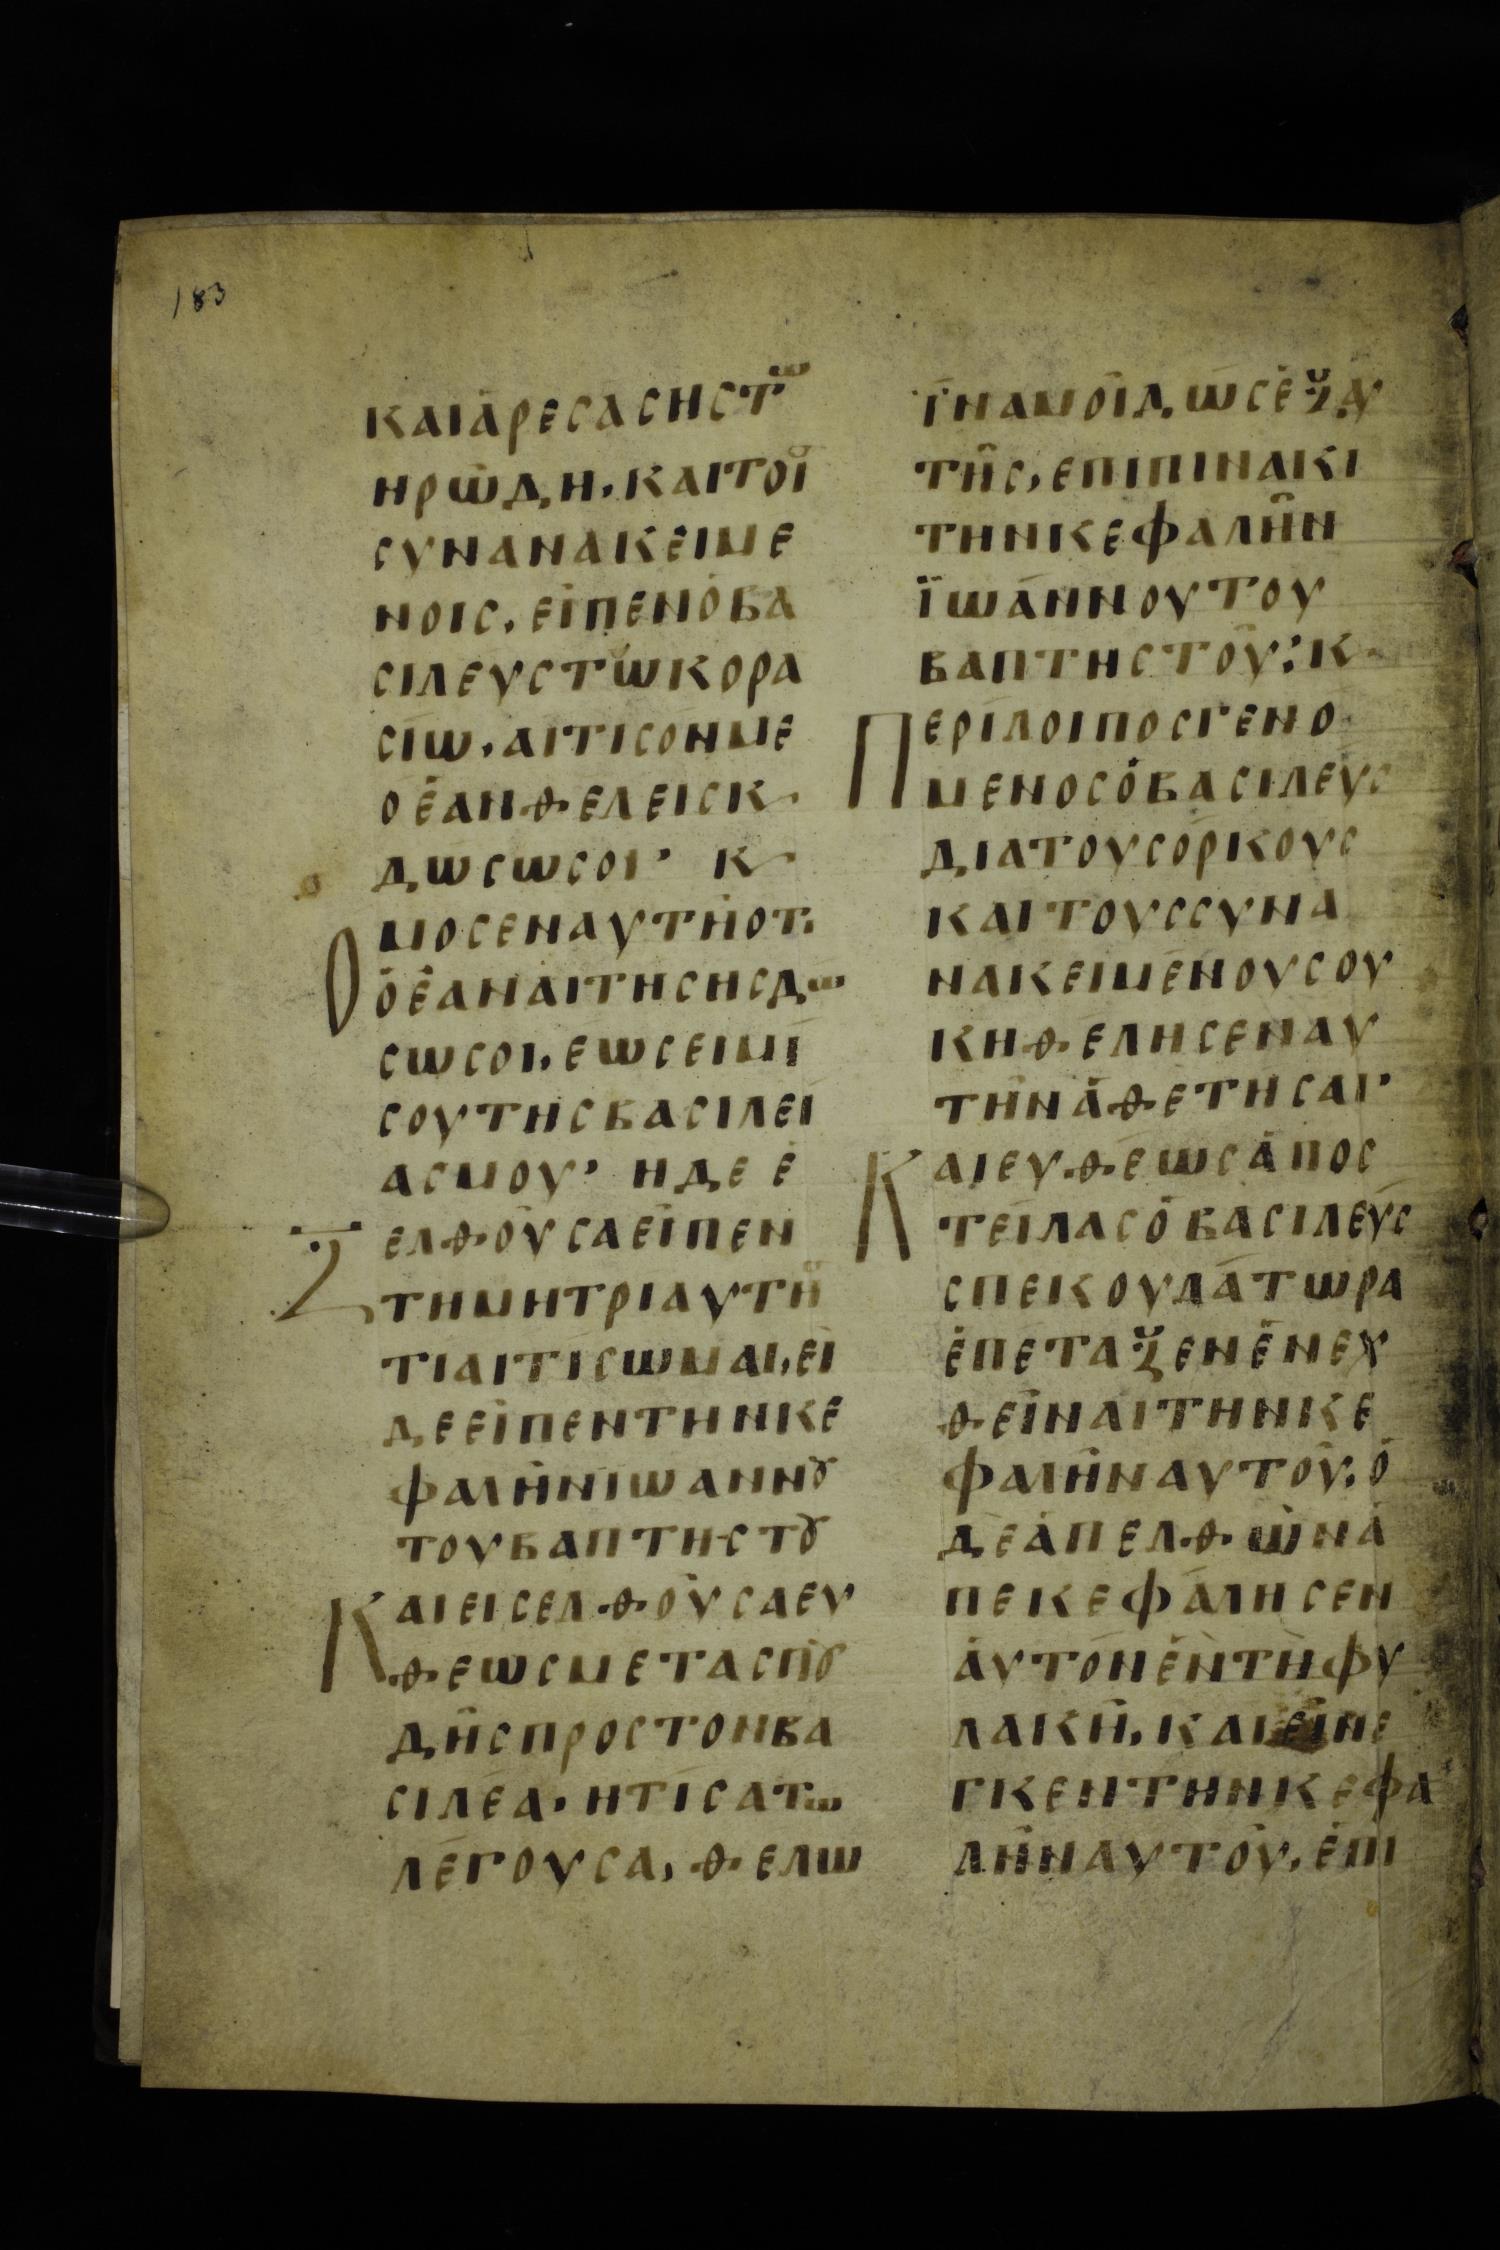 183
ΚΑΙΑΡΕСΑСΗСΤω
ΗΡωΔΗ,ΚΑΙΤΟΙ
СΥΝΑΝΑΚΕΙΜΕ
ΝΟΙС,ΕΙΠΕΝΟΒΑ
СΙΛΕΥСΤωΚΟΡΑ
СΙω,ΑΙΤΙСΟΝΜΕ
ΟΕΑΝΘΕΛΕΙСΚ
ΔωСωСΟΙ, Κ
ΜΟСΕΝΑΥΤΗΟΤ
ΟΟΕΑΝΑΙΤΗСΗСΔω
СωСΟΙ,ΕωСΕΙΜΙ
СΟΥΤΗСΒΑСΙΛΕΙ
ΑСΜΟΥ, ΗΔΕ Ε
ΞΕΛΘΟΥСΑΕΙΠΕΝ
ΤΗΜΗΤΡΙΑΥΤΗ
ΤΙΑΙΤΙСωΜΑΙ,ΕΙ
ΔΕΕΙΠΕΝΤΗΝΚΕ
ΦΑΛΗΝΙωΑΝΝȣ
ΤΟΥΒΑΠΤΗСΤȣ
ΚΑΙΕΙСΕΛΘΟΥСΑΕΥ
ΘΕωСΜΕΤΑСΠȣ
ΔΗСΠΡΟСΤΟΝΒΑ
СΙΛΕΑ,ΗΤΙСΑΤω
ΛΕΓΟΥСΑ,ΘΕΛω
ΪΝΑΜΟΙΔωСΕΞΑΥ
ΤΗС,ΕΠΙΠΙΝΑΚΙ
ΤΗΝΚΕΦΑΛΗΝ
ΪωΑΝΝΟΥΤΟΥ
ΒΑΠΤΗСΤΟΥ:Κ
ΠΕΡΙΛΟΙΠΟСΓΕΝΟ
ΜΕΝΟСΟΒΑСΙΛΕΥС
ΔΙΑΤΟΥСΟΡΚΟΥС
ΚΑΙΤΟΥССΥΝΑ
ΝΑΚΕΙΜΕΝΟΥСΟΥ
ΚΗΘΕΛΗСΕΝΑΥ
ΤΗΝΑΘΕΤΗСΑΙ,
ΚΑΙΕΥΘΕωСΑΠΟС
ΤΕΙΛΑСΟΒΑСΙΛΕΥС
СΠΕΚΟΥΛΑΤωΡΑ
ΕΠΕΤΑΞΕΝΕΝΕΧ
ΘΕΙΝΑΙΤΗΝΚΕ
ΦΑΛΗΝΑΥΤΟΥ,Ο
ΔΕΑΠΕΛΘωΝΑ
ΠΕΚΕΦΑΛΗСΕΝ
ΑΥΤΟΝΕΝΤΗΦΥ
ΛΑΚΗ,ΚΑΙΕΙΝΕ
ΓΚΕΝΤΗΝΚΕΦΑ
ΛΗΝΑΥΤΟΥ,ΕΠΙ